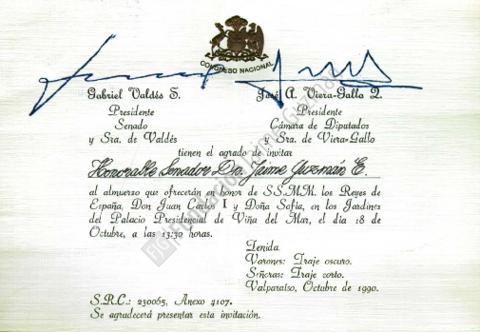 CONGRESO NACIONAL
Gabriel Valdés S. José A. Viera-Gallo Q.
Presidente Presidente
Senado Cámara de Diputados
y Sra. de Valdés y Sra. de Viera-Gallo
tienen el agrado de invitar
Honorable Senador Dn. Jaime Guzmán E.
al almuerzo que ofrecerán en honor de SS.MM. los Reyes de
España, Don Juan Carlos I y Doña Sofía, en los Jardines
del Palacio Presidencial de Viña del Mar, el día 18 de
Octubre, a las 13:30 horas.
Tenida
Varones: Traje oscuro.
Señoras: Traje corto.
Valparaíso, Octubre de 1990.
S.R.C.: 230065, Anexo 4107.
Se agradecerá presentar esta invitación.